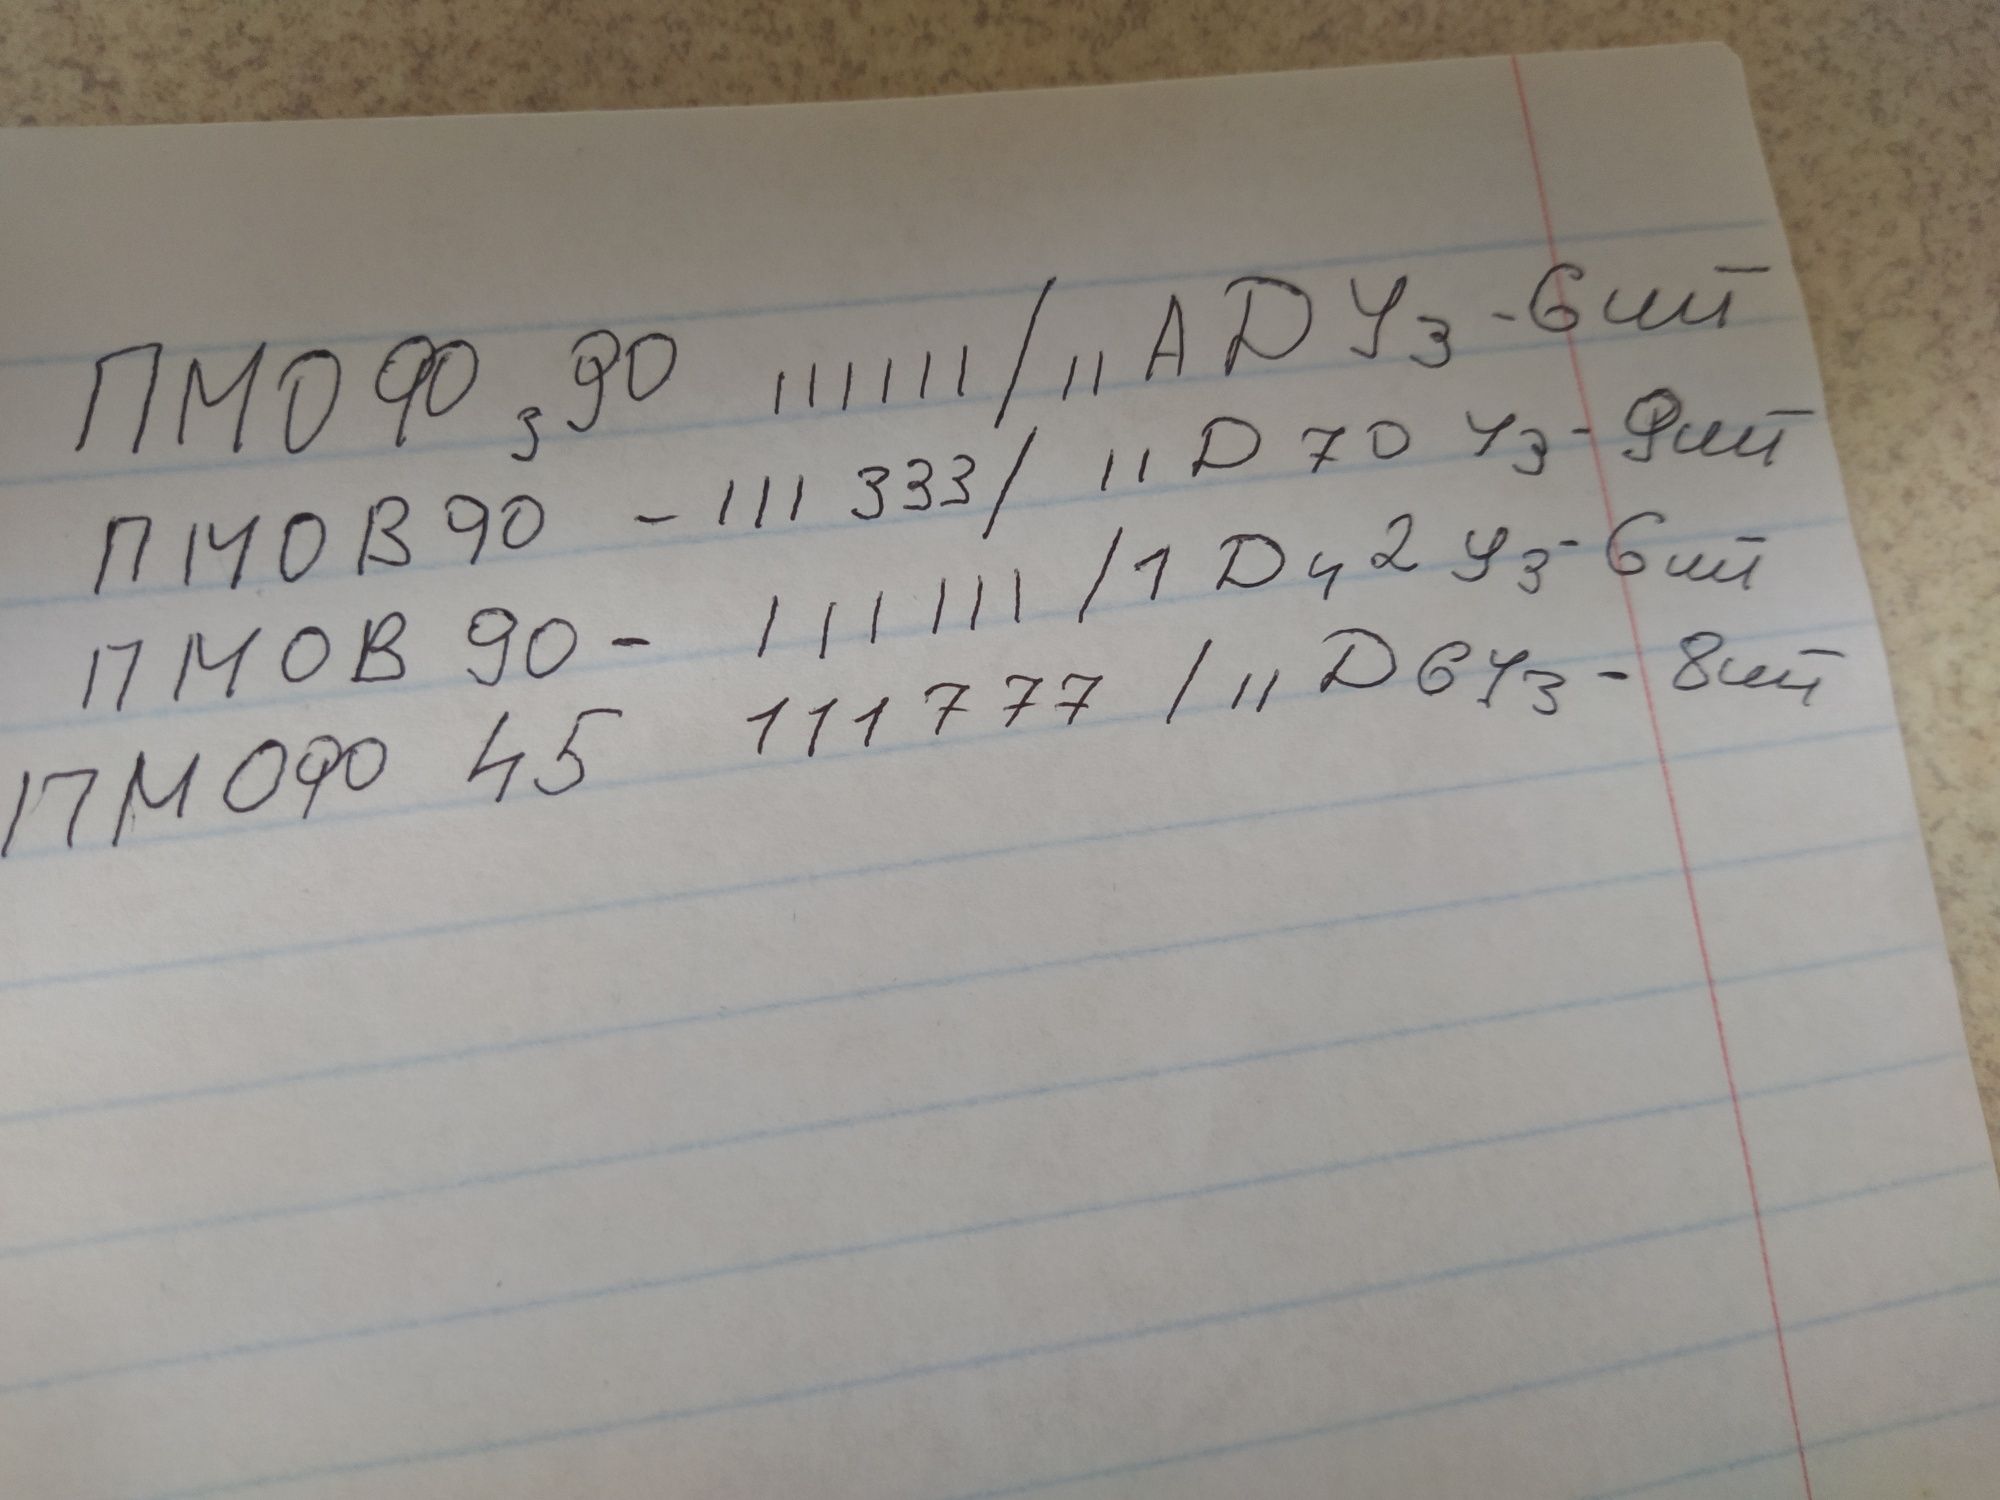 ПМОФ,90 111111/11АDУ3-6шт
ПМОВ90 - 111333/11D70У3-9шт
ПМОВ 90 - 111111/1D42У3-6шт
ПМОФ 45 111777/11D6У3-8шт